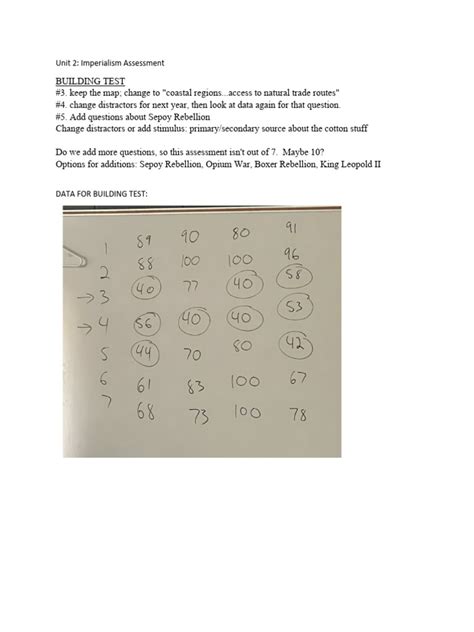 Unit 2: Imperialism Assessment
BUILDING TEST
#3. keep the map; change to "coastal regions...access to natural trade routes"
#4. change distractors for next year, then look at data again for that question.
#5. Add questions about Sepoy Rebellion
Change distractors or add stimulus: primary/secondary source about the cotton stuff
Do we add more questions, so this assessment isn't out of 7. Maybe 10?
Options for additions: Sepoy Rebellion, Opium War, Boxer Rebellion, King Leopold II
DATA FOR BUILDING TEST:
1 89 90 80 91
2 88 100 100 96
→ 3 40 77 40 58
→ 4 56 40 40 53
5 44 70 80 42
6 61 83 100 67
7 68 73 100 78